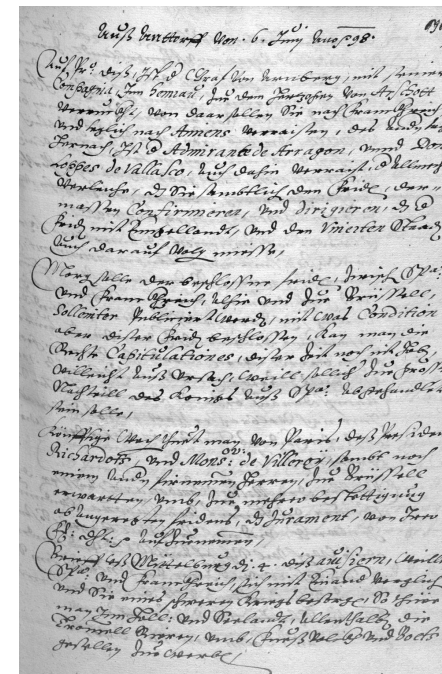 Auß Anttorff von .6. Junij Anno 98.
Auf Pro. diß, ist d Graf von Arnberg, mit seiner
Compagnia, Im Henau, Zu dem Herzogen von Arschott
verruckht, von daar sollen Sie nach Franckhreich
vnd erstlich nach Amiens verraisen, des andern tags
hernach, ist d Admirante de Arragon, vnnd Don
Loppes de Vallasco, auch dahin verraist, d Allmechtig
verleiche, dz Sie sambtlich den Friden, der-
massen Confirmeren, vnd dirigieren, dz d
Friden mit Engellandt, vnd den Vnierten Staaden
auch darauf volg müesse,
Morgen solle der beschlossne friden, zwischen Spa:
vnd Franckhreich, Alhie vnd Zu Brüssell,
Sollemter publiciert werden, mit was Condition
aber diser Friden beschlossen, kan man die
Rechte Capitulationes, diser Zeit noch nit haben,
villeicht auß vrsach, weill sollich Zu grossem
Nachtaill des Königs auß Spa: abgehandlet
sein solle,
Künfftige Wochen hat man von Paris, deß President
Richardotts, vnd Monsr: de Villeroy, sambt noch
einem andern fürnemen Herren, Zu Brüssell
erwartten, vmb, Zu mehrer bestettigung
abangeregten fridens, dz Jurament, von Irer
aufzunemen,
Brieff auß Mittelburg di .4. diß auisiern, weill
Spa: vnd Franckhreich, sich mit einand verglichen
vnd Sie eines schweren Kriegs besorgen, So thue
man Inn Holl: vnd Seelandt, allenthalb die
Trommell Rieren, vmb, Kriegs volckh vnd Boots
gesellen Zu werben,